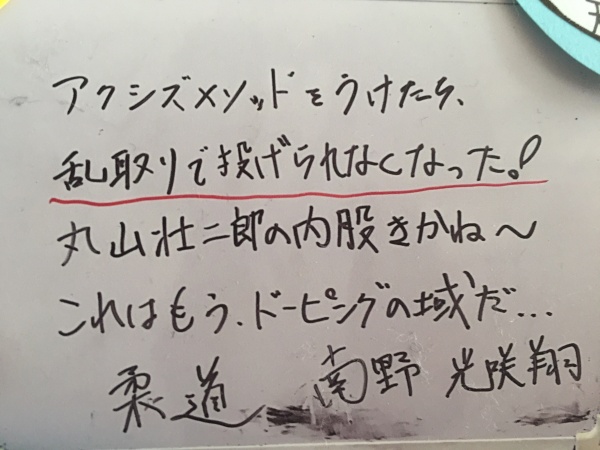 アクシズメソッドをうけたら、
乱取りで投げられなくなった!
丸山壮二郎の内股きかね〜
これはもう、ドーピングの域だ...
柔道 南野 光咲翔